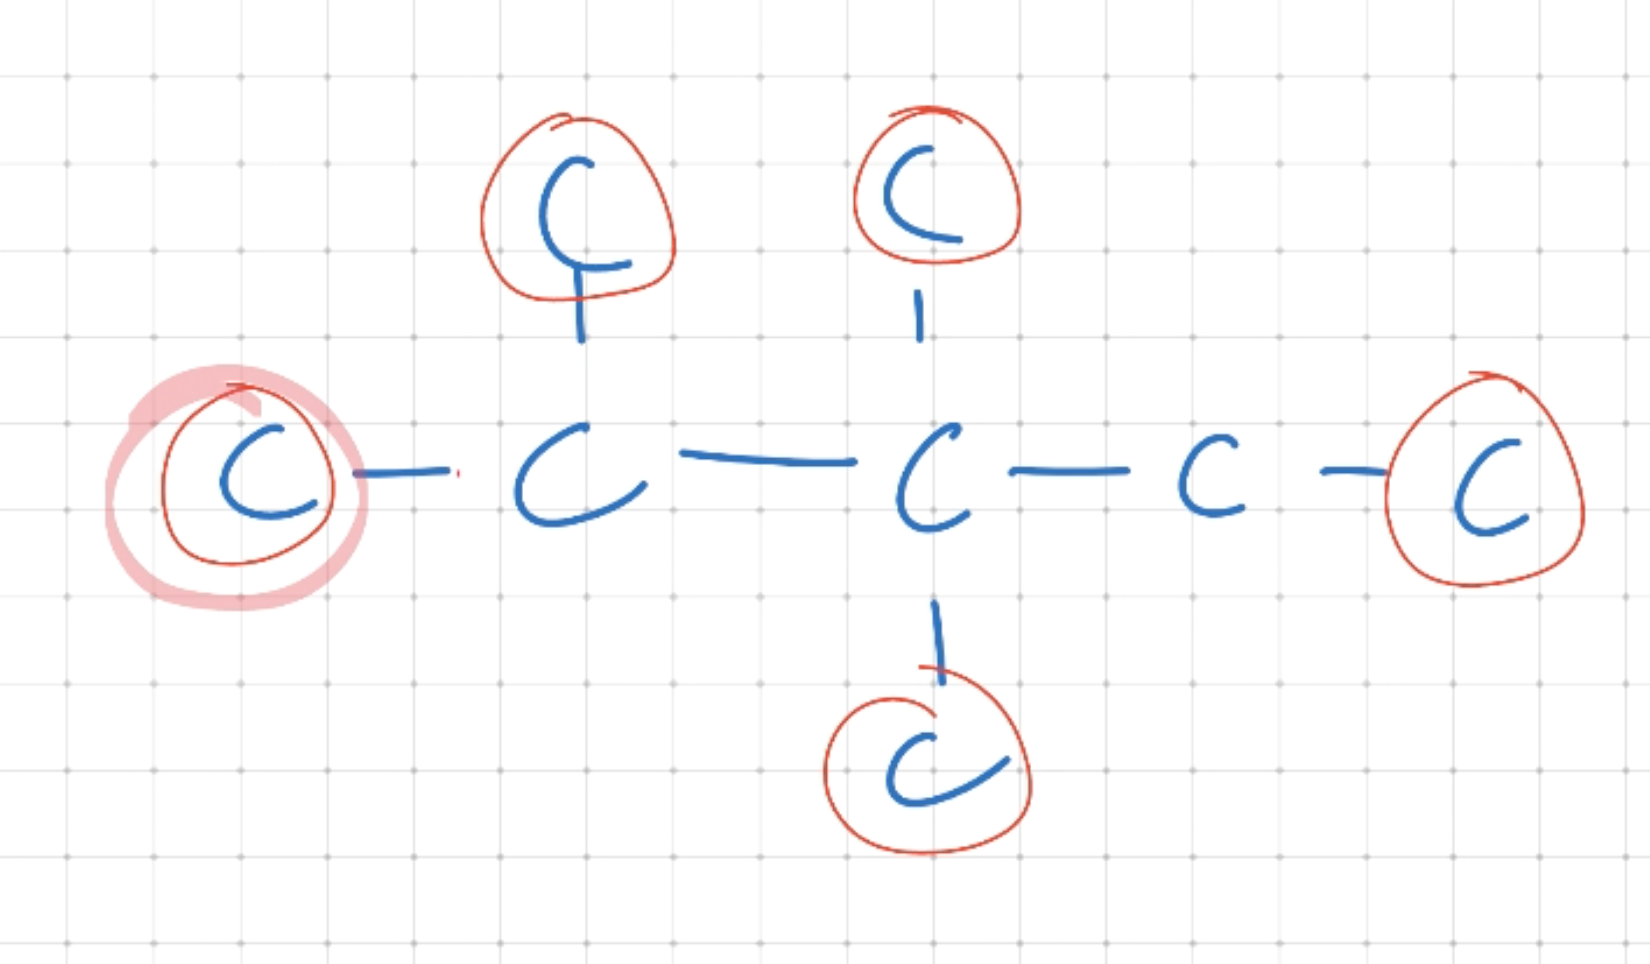 C C
C — C — C — C — C
C